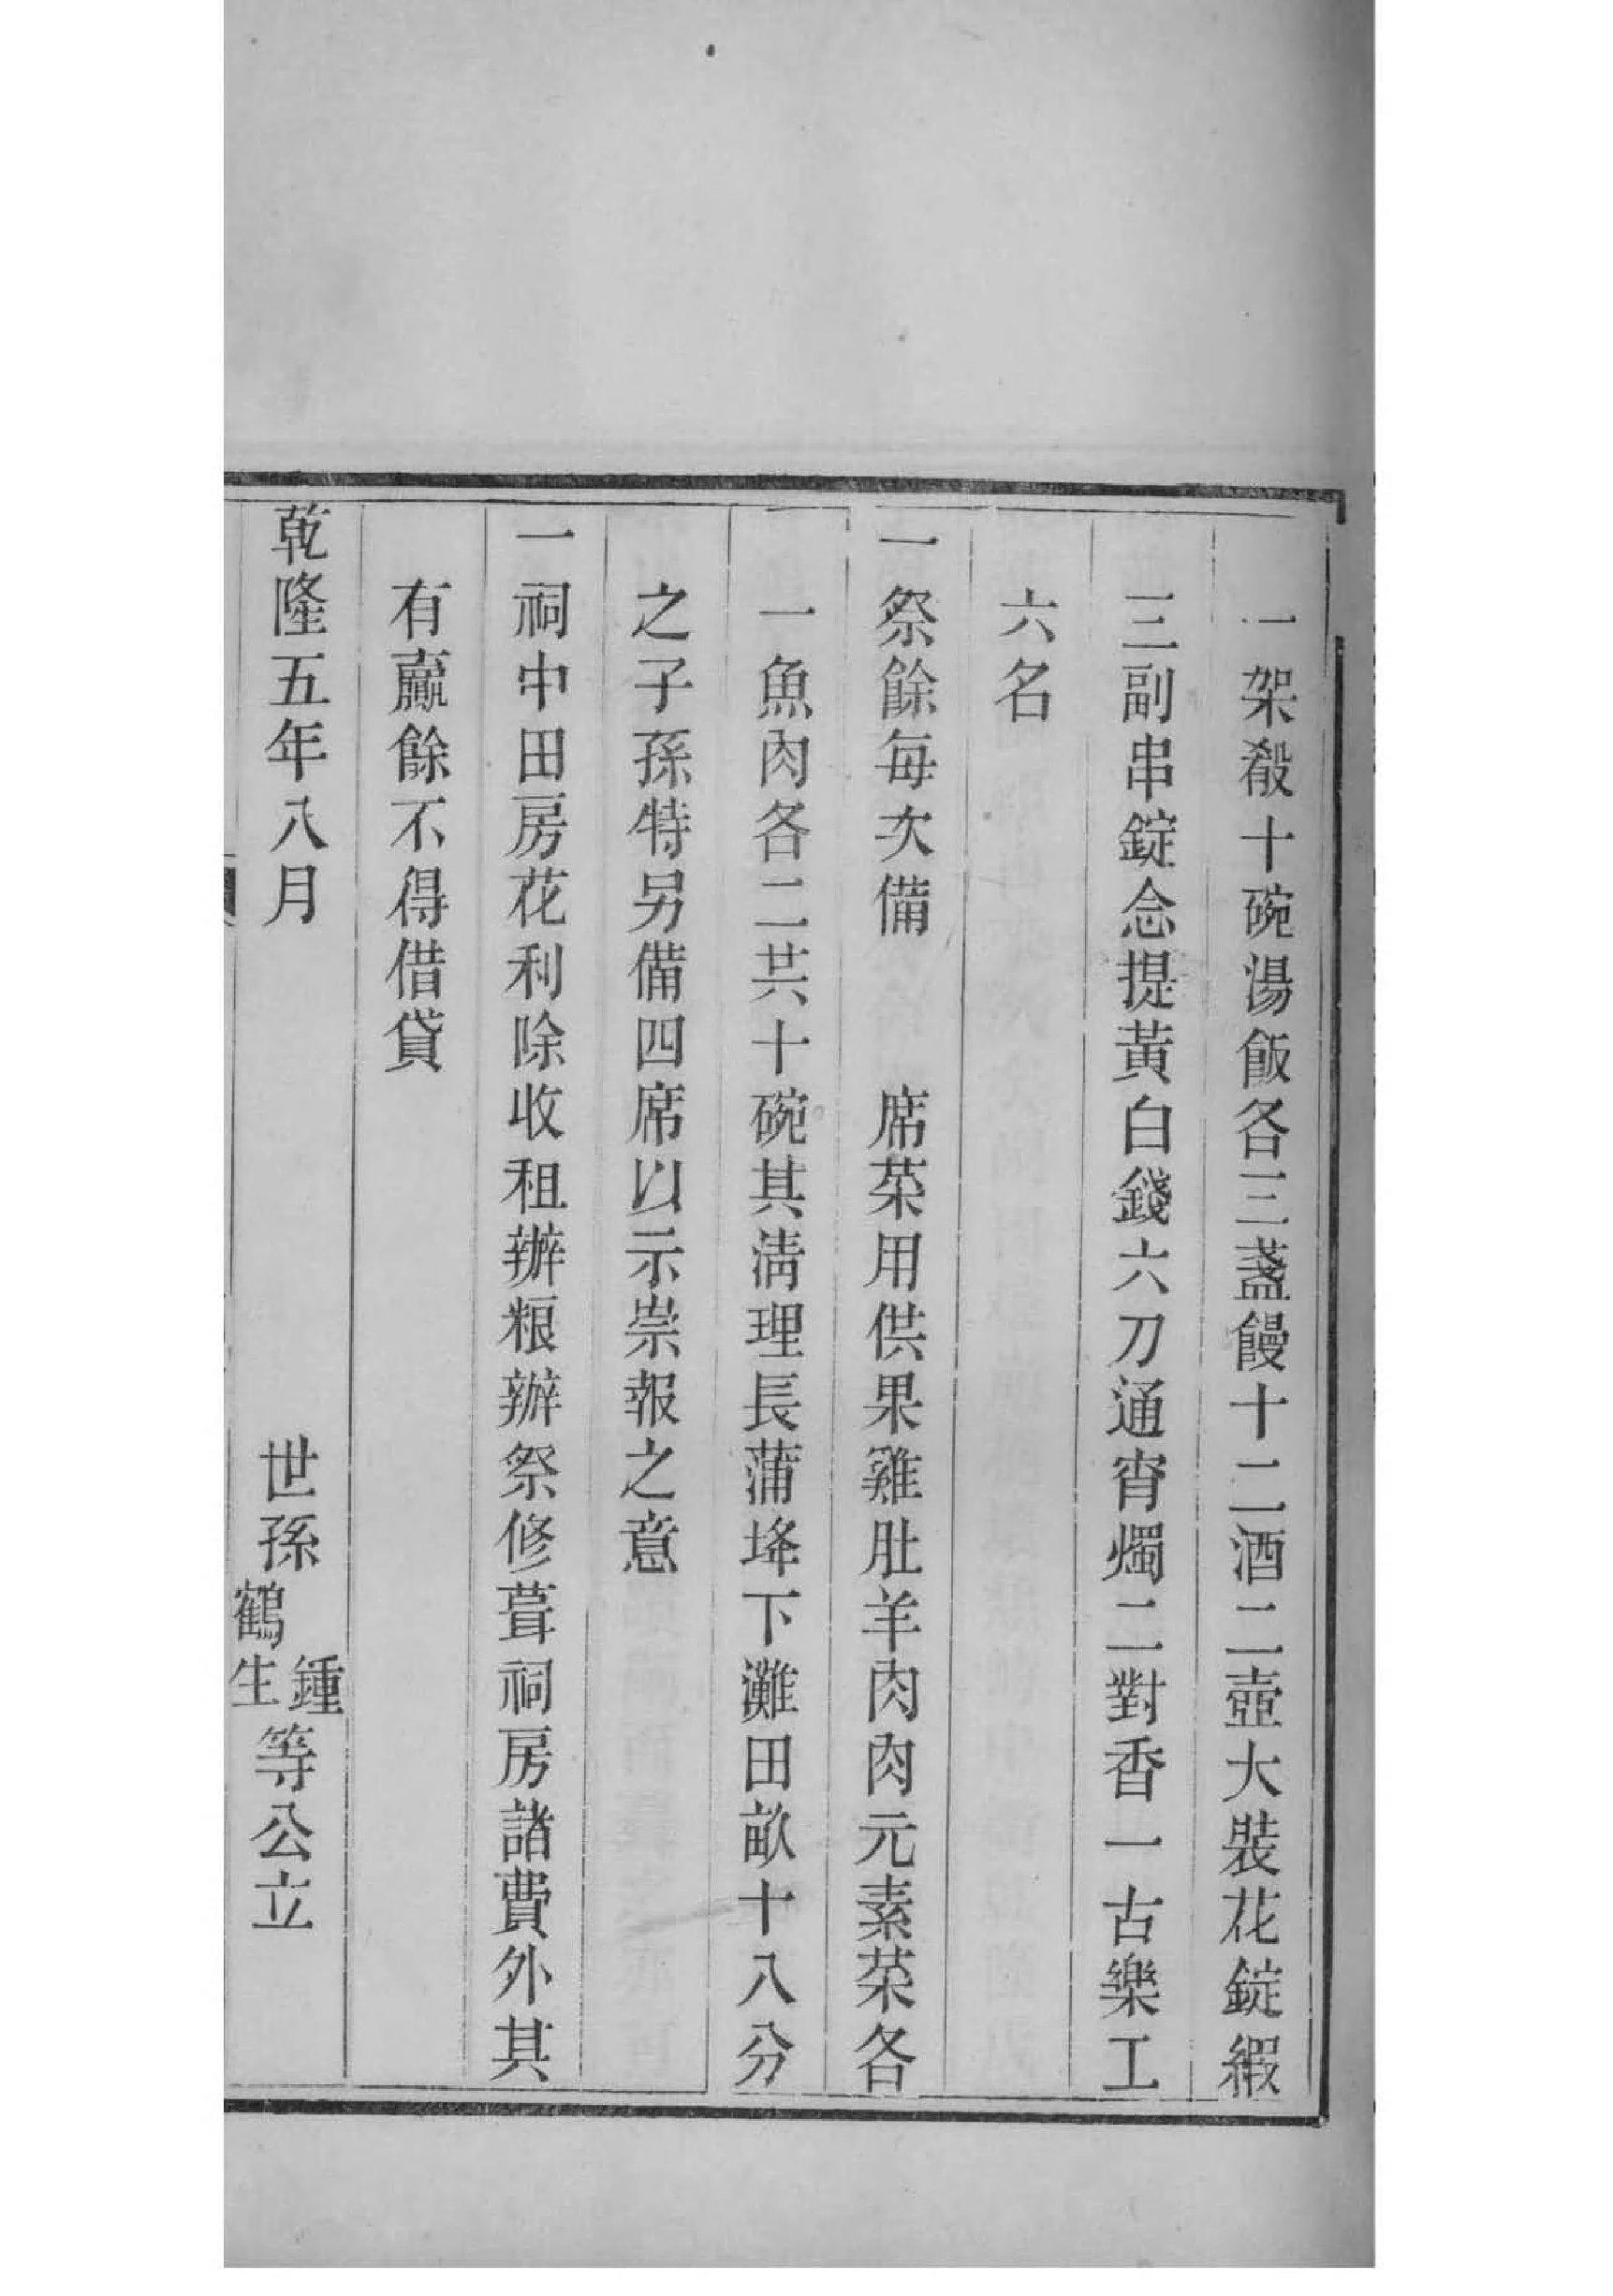 一架殽十碗湯飯各三盞饅十二酒二壺大裝花錠緞
三副串錠念提黃白錢六刀通宵燭二對香一古樂工
六名
一祭餘每次備　　席菜用供果雞肚羊肉肉元素菜各
一魚肉各二共十碗其清理長蒲垰下灘田畝十八分
之子孫特另備四席以示崇報之意
一祠中田房花利除收租辦粮辦祭修葺祠房諸費外其
有贏餘不得借貸
乾隆五年八月　　　　　世孫鍾鶴生等公立